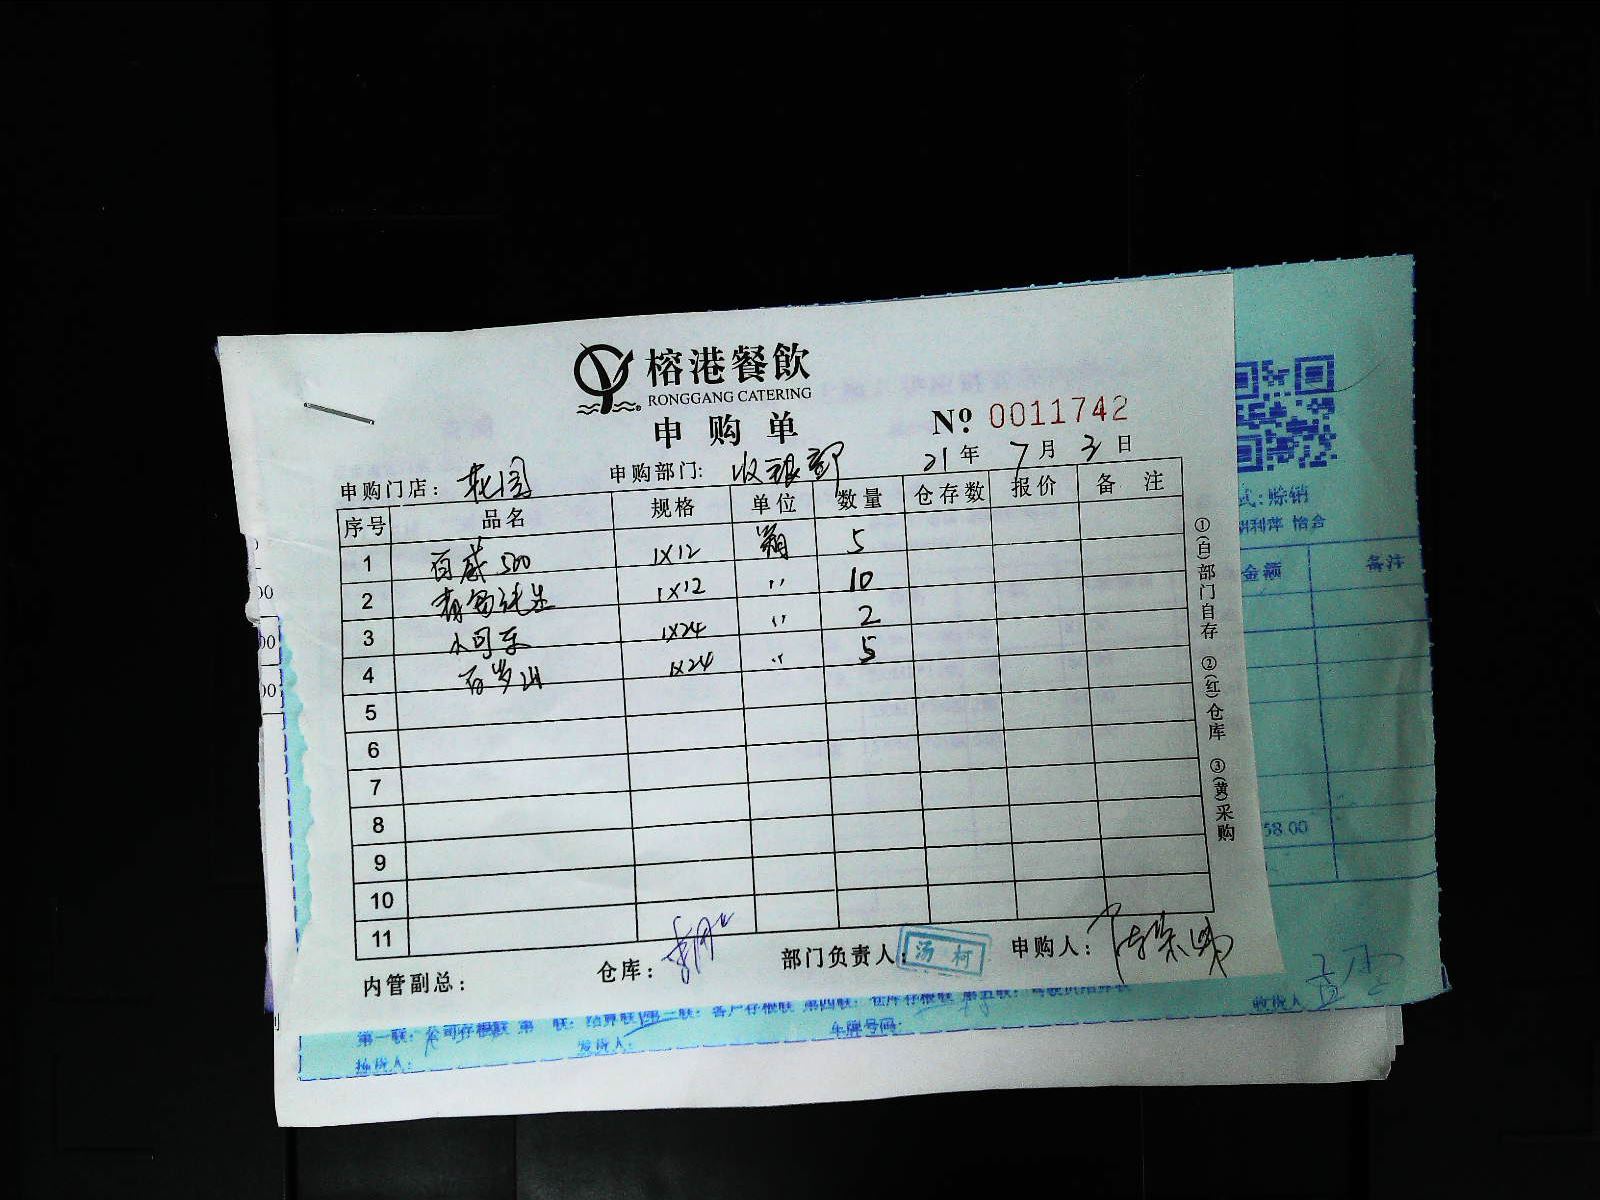 榕港餐飲
RONGGANG CATERING
申购单
№ 0011742
申购门店: 花园 申购部门: 收银部 21年 7月 3日
序号 品名 规格 单位 数量 仓存数 报价 备注
1 百威500 1×12 箱 5
2 青岛纯生 1×12 〃 10
3 小可乐 1×24 〃 2
4 百岁山 1×24 〃 5
5
6
7
8
9
10
11
内管副总: 仓库: 部门负责人: 汤柯 申购人:
①(白)部门自存 ②(红)仓库 ③(黄)采购
式:赊销
怡合
金额 备注
58.00
00
00
00
第一联:公司存根联 第 联:结算联 第三联:客户存根联 第四联:仓库存根联 第五联:
车牌号码:
收货人
发货人: